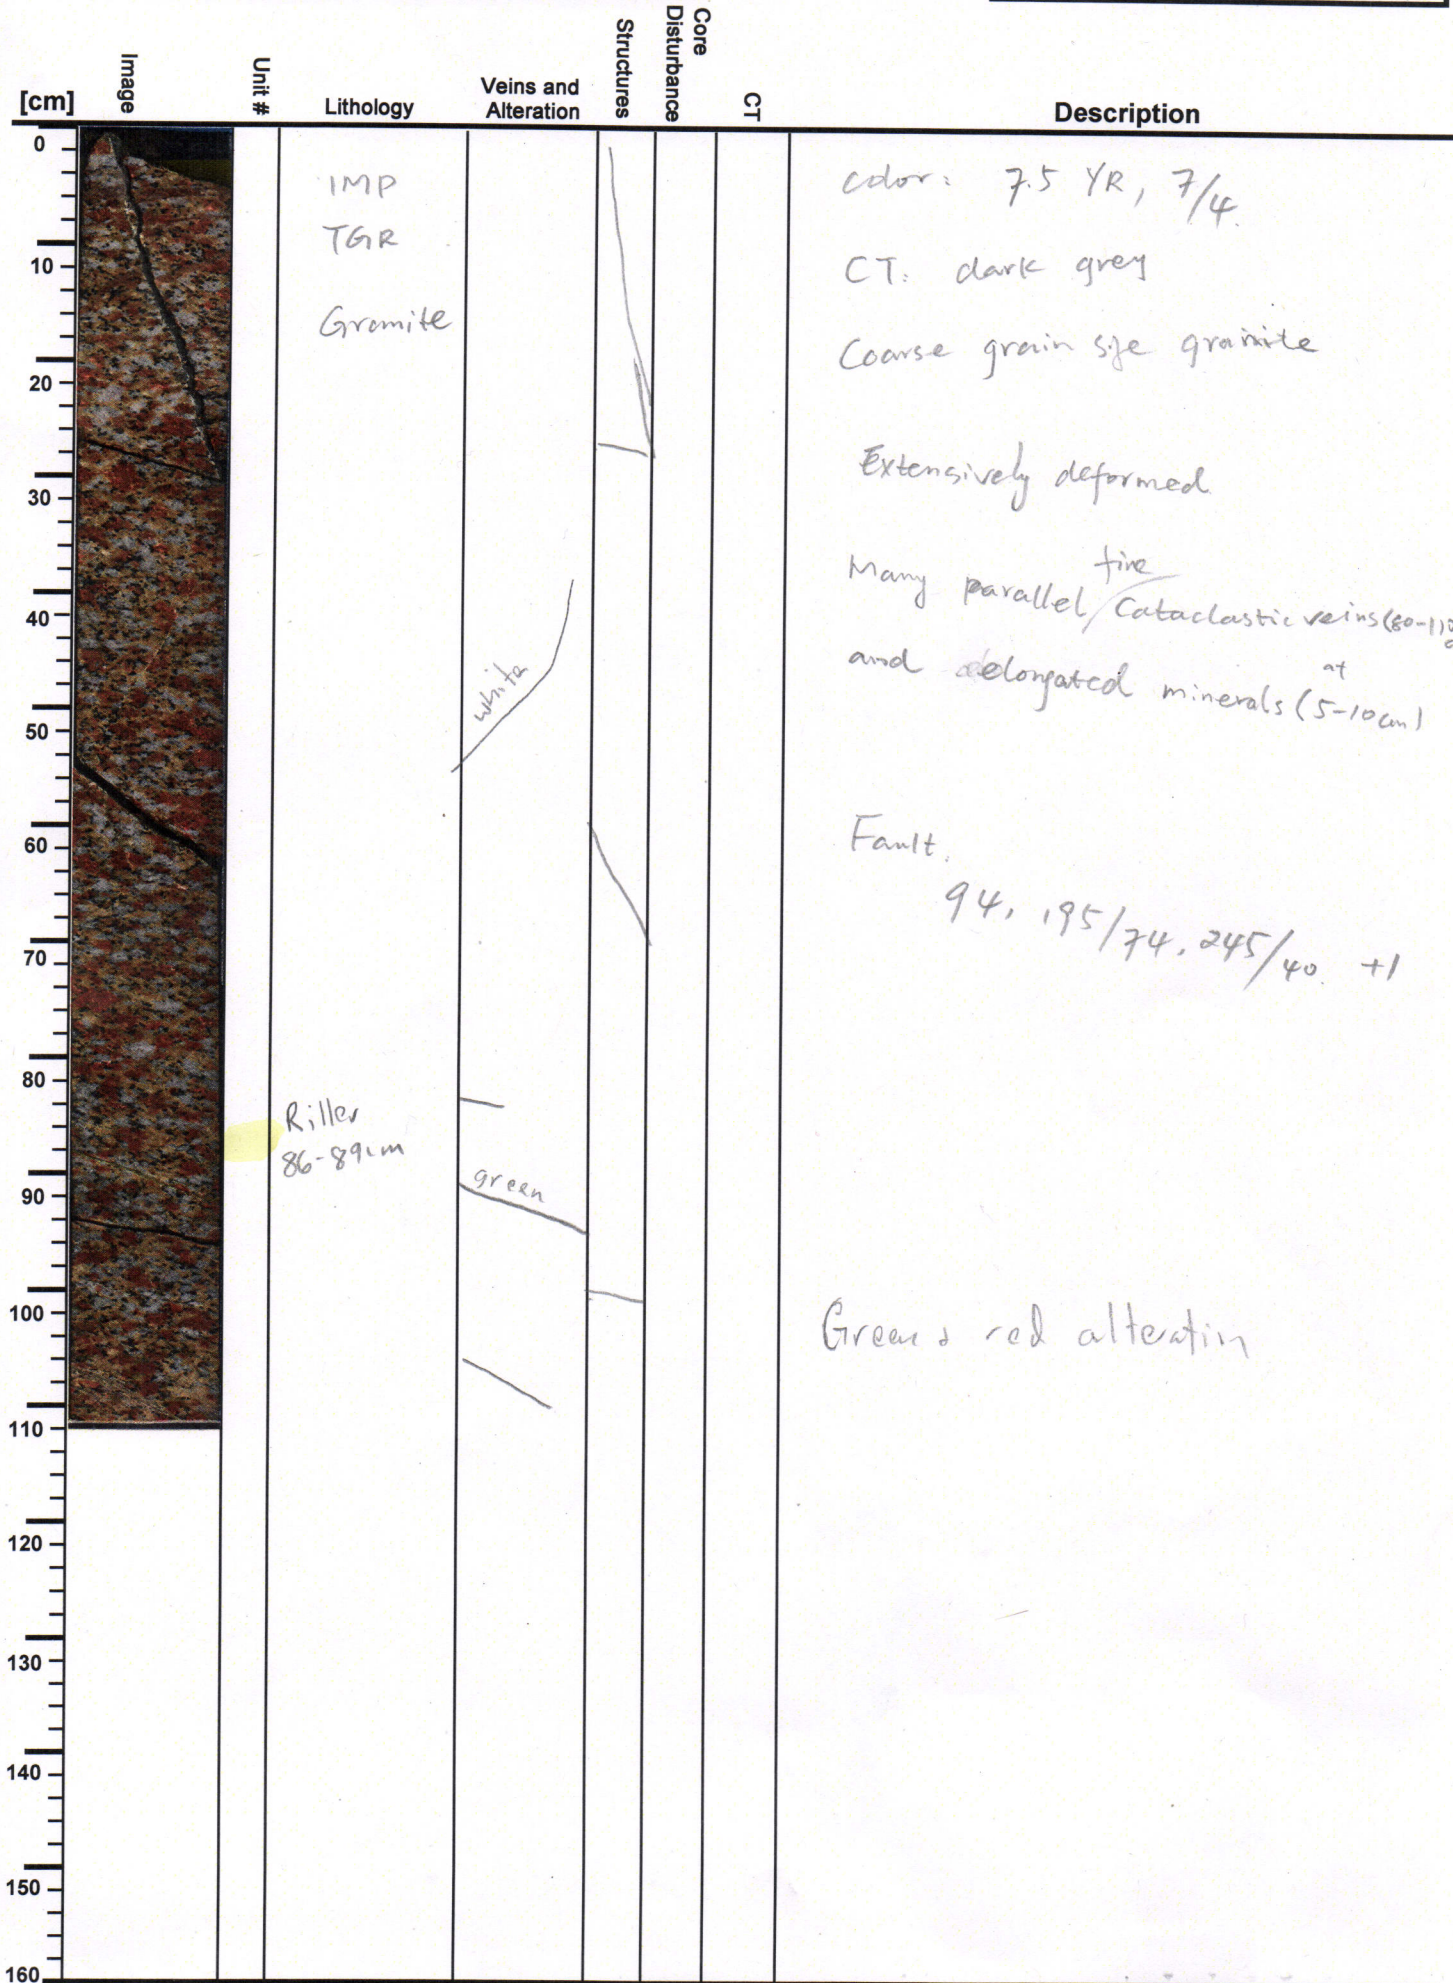 [cm]
Image
Unit #
Lithology
Veins and
Alteration
Structures
Core
Disturbance
CT
Description
0
10
20
30
40
50
60
70
80
90
100
110
120
130
140
150
160
IMP
TGR
Granite
white
Riller
86-89cm
green
color: 7.5 YR, 7/4.
CT: dark grey
Coarse grain size granite
Extensively deformed
Many parallel fine cataclastic veins (80-
and elongated minerals (at 5-10 cm)
Fault.
94, 195/74, 245/40. +1
Green & red alteratin